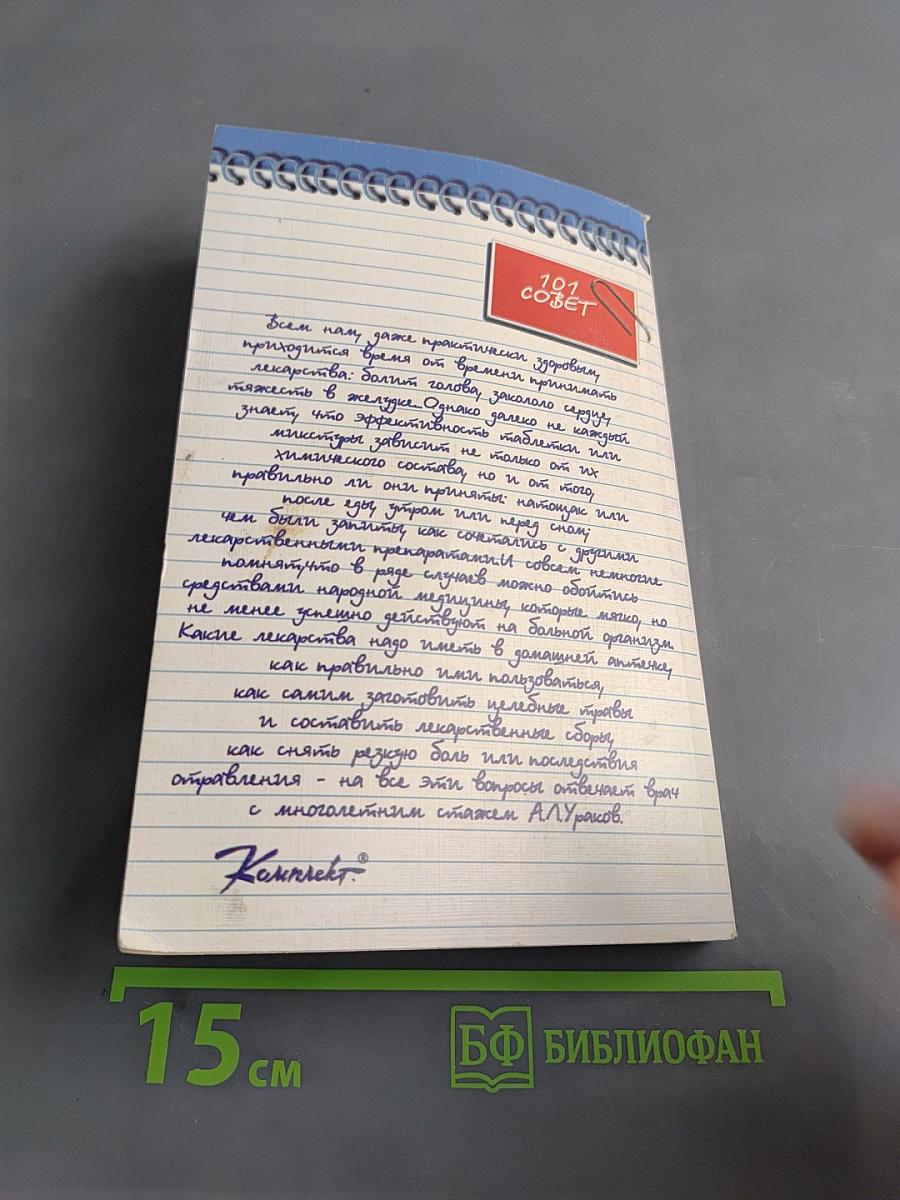 101
СОВЕТ
Всем нам, даже практически здоровым,
приходится время от времени принимать
лекарства: болит голова, закололо сердце,
тяжесть в желудке... Однако далеко не каждый
знает, что эффективность таблетки или
микстуры зависит не только от их
химического состава, но и от того,
правильно ли они приняты: натощак или
после еды, утром или перед сном;
чем были запиты, как сочетались с другими
лекарственными препаратами. И совсем немногие
помнят, что в ряде случаев можно обойтись
средствами народной медицины, которые мягко, но
не менее успешно действуют на больной организм.
Какие лекарства надо иметь в домашней аптечке,
как правильно ими пользоваться,
как самим заготовить целебные травы
и составить лекарственные сборы,
как снять резкую боль или последствия
отравления - на все эти вопросы отвечает врач
с многолетним стажем А.Л.Ураков.
Комплект.®
15 см
БФ БИБЛИОФАН